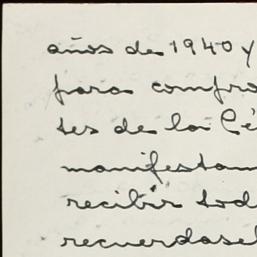 años de 1940 y
para compro
tes de la Cé
manifestam
recibir tod
recuerdasel